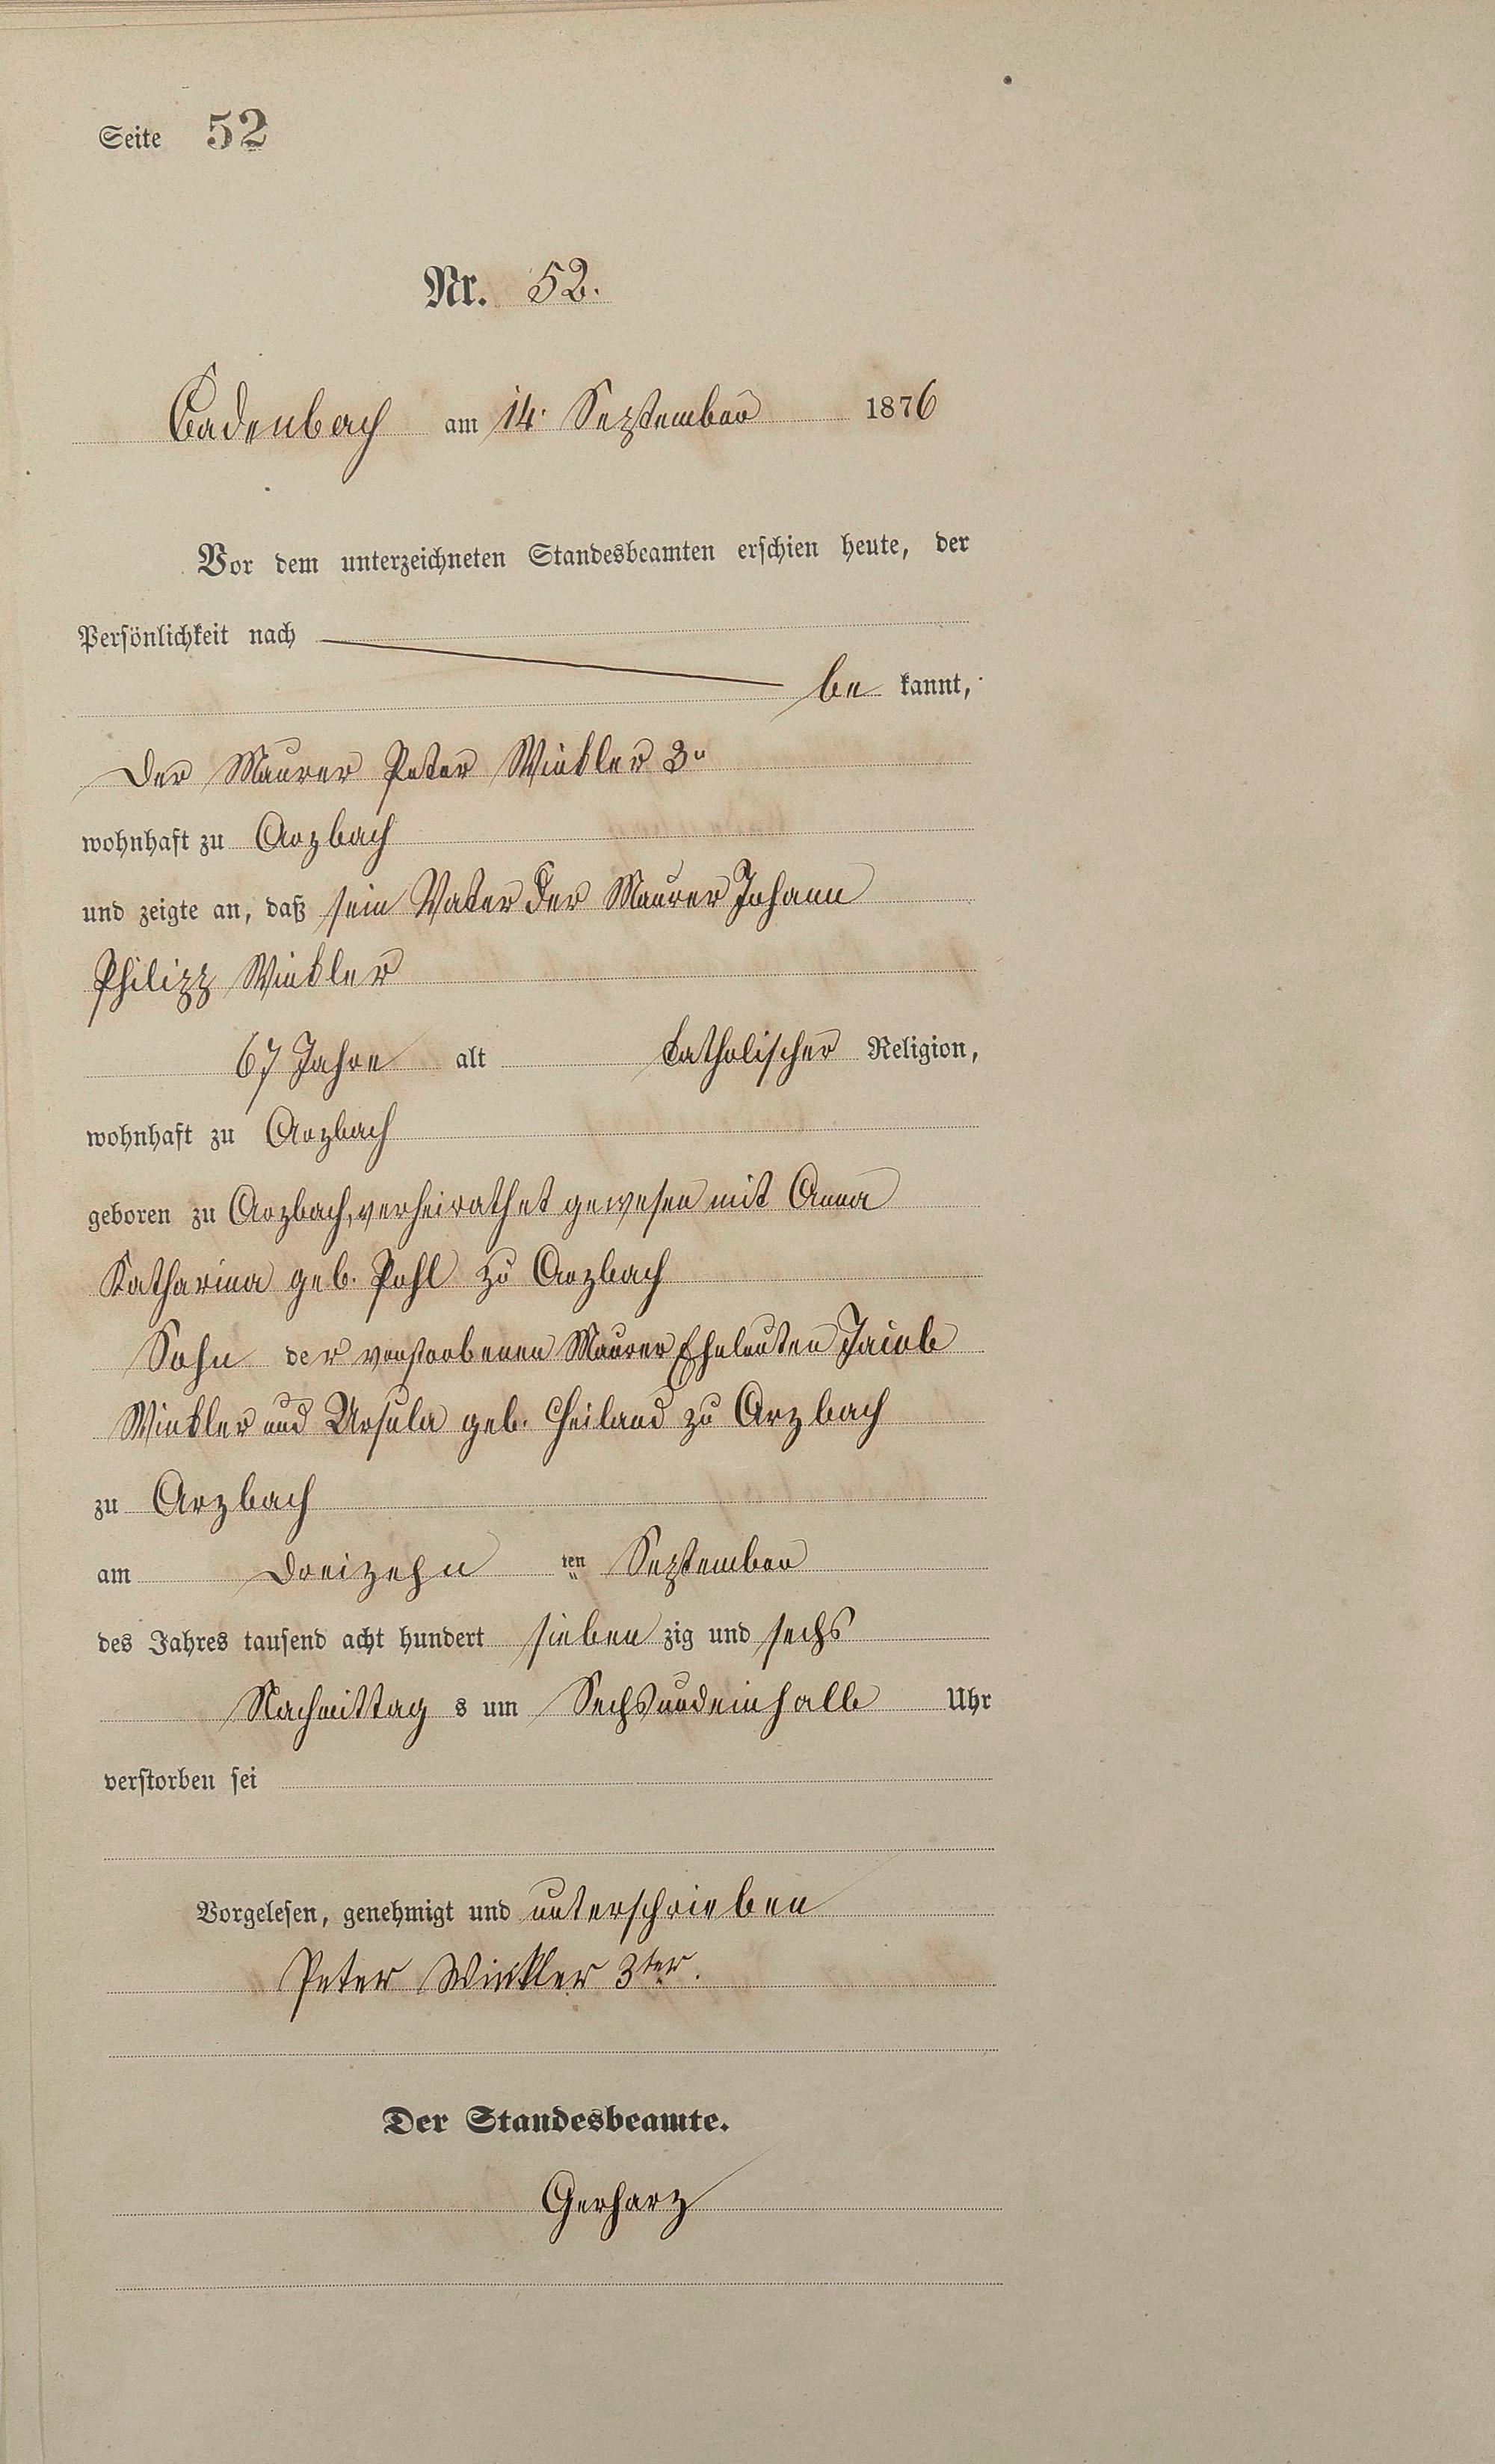 Seite 52
Nr. 52.
Cadenbach am 14. September 1876
Vor dem unterzeichneten Standesbeamten erschien heute, der
Persönlichkeit nach
be kannt,
Der Maurer Peter Winkler 3r
wohnhaft zu Arzbach
und zeigte an, daß sein Vater der Maurer Johann
Philipp Winkler
67 Jahre alt katholischer Religion,
wohnhaft zu Arzbach
geboren zu Arzbach, verheirathet gewesen mit Anna
Katharina geb. Pohl zu Arzbach
Sohn der verstorbenen Maurer Eheleuten Jacob
Winkler und Ursula geb. zu Arzbach
zu Arzbach
am Dreizehn ten September
des Jahres tausend acht hundert sieben zig und sechs
Nachmittag s um Sechsundeinhalb Uhr
verstorben sei
Vorgelesen, genehmigt und unterschrieben
Peter Winkler 3ter.
Der Standesbeamte.
Gerharz